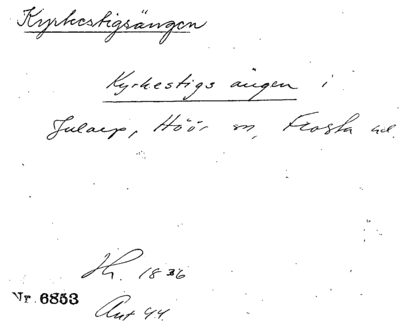 Kyrkestigsängen
Kyrkestigs ängen i
Jularp, Höör sn, Frosta hd.
Hr. 1836
Nr. 6853
Ant 44.